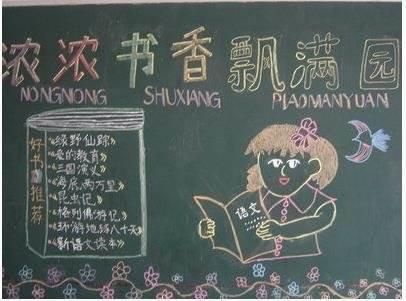 浓浓书香飘满园
NONGNONG SHUXIANG PIAOMANYUAN
好书推荐
《绿野仙踪》
《爱的教育》
《三国演义》
《海底两万里》
《昆虫记》
《格列佛游记》
《环游地球八十天》
《新语文读本》
语文